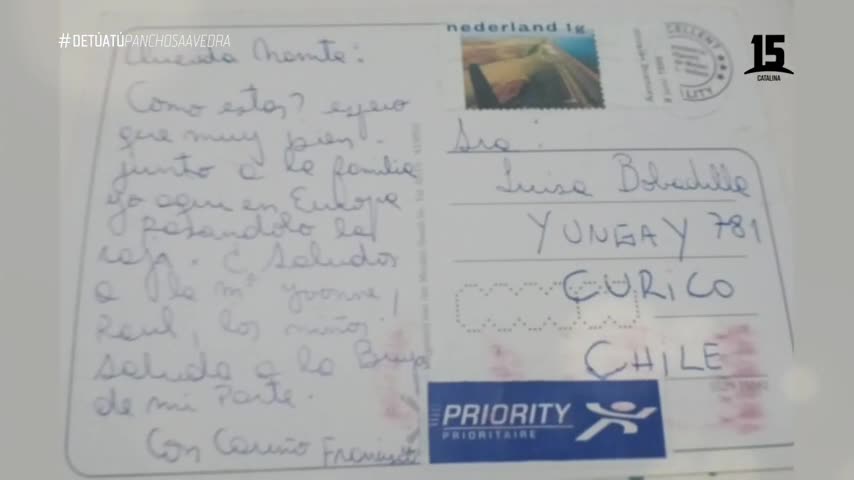 #DETÚATÚPANCHOSAAVEDRA
15
CATALINA
nederland 1g
Querida Mamita:
Como estas? espero
que muy bien.
junto a la familia
yo aqui en Europa
pasandolo la
raja. Saludos
a la Mª Yvonne,
Raul, los niños
saluda a la Bruja
de mi parte.
Con Cariño Francisco
Sra:
Luisa Bobadilla
YUNGAY 781
CURICO
CHILE
PRIORITY
PRIORITAIRE